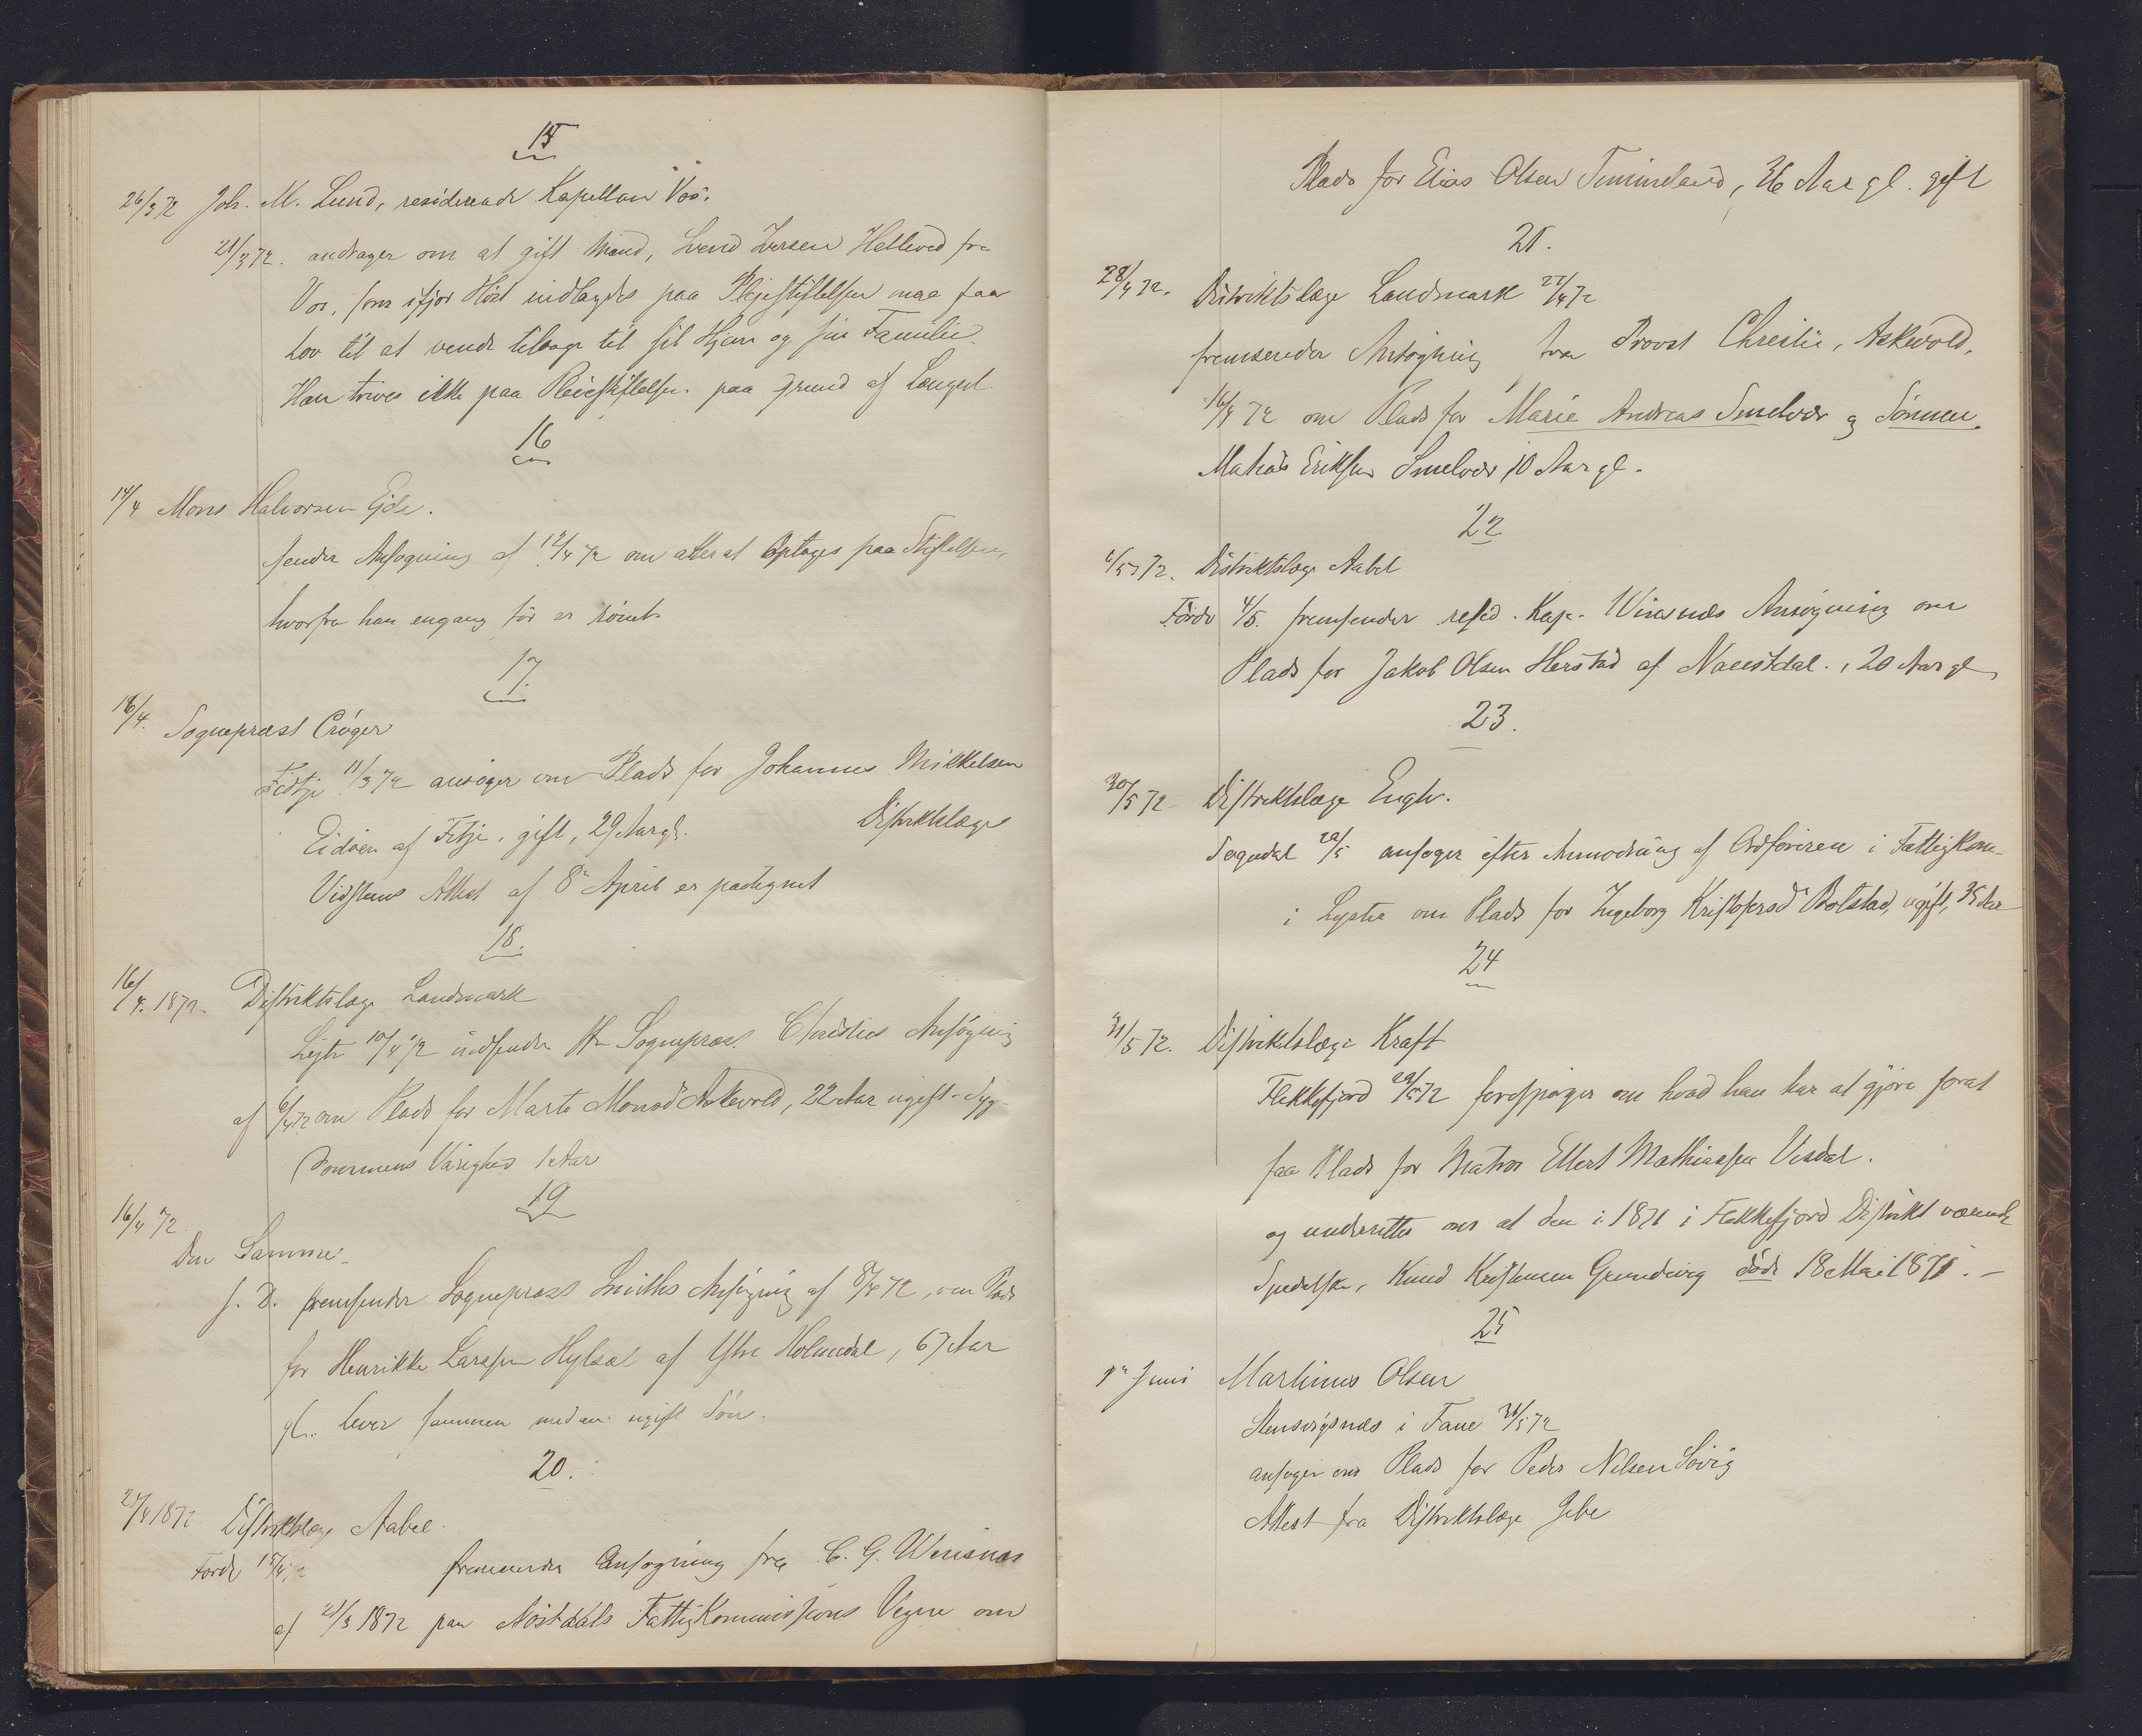 15
26/3 72 Joh. M. Lund, residerende Kapellan Vos.
21/3 72. andrager om at gift Mand, Svend Iversen Helleved fra
Vos, som ifjor Høst indlagdes paa Plejestiftelsen maa faa
Lov til at vende tilbage til sit Hjem og sin Familie.
Han trives ikke paa Pleiestiftelsen paa Grund af Længsel.
16
14/4 Mons Halvorsen Eide.
sender Ansøgning af 12/4 72 om atter at optages paa Stiftelsen,
hvorfra han engang før er rømt.
17.
16/4. Sogneprest Crøger
Fidtje 11/3 72 ansøger om Plads for Johannes Mikkelsen
Eidøen af Fitje, gift, 29 Aar gl. Distriktslæge
Vidstens Attest af 8de April er paategnet
18.
16/4. 1872. Distriktslæge Landmark
10/4 72 indsender Hr Sognepræst Christies Ansøgning
af 6/4 72 om Plads for Marte Monsd Askevold, 22 Aar ugift. Syg-
dommens Varighed 1 Aar
19
16/4 72
Den Samme.
s. D. fremsender Sognepræst Smiths Ansøgning af 8/4 72, om Plads
for Henrikke Larssen Hylsæt af Ytre Holmedal, 67 Aar
gl. lever sammen med en ugift Søn.
20.
1872 Distriktslæge Aabel.
Førde fremsender Ansøgning fra C. G. Winsnæs
af 21/3 1872 paa Nøstdals Fattigkommissions Vegne om
Plads for Elias Olsen Timmeland, 36 Aar gl. gift
21.
28/4 72. Distriktslæge Landmark 27/4 72
fremsender Ansøgning fra Provst Christie, Askevold,
16/4 72 om Plads for Marie Andreas Smelvær og Sønnen
Matias Eriksen Smelvær, 10 Aar gl.
22
6/5 72. Distriktslæge Aabel
Førde 4/5. fremsender resid. Kap. Winsnæs Ansøgning om
Plads for Jakob Olsen Herstad af Naustdal, 20 Aar gl
23.
30/5 72 Distriktslæge Engh.
Sogndal 22/5 ansøger efter Anmodning af Ordføreren i Fattigkom.
i Lyster om Plads for Ingeborg Kristofersd Bolstad, ugift, 35 Aar
24
31/5 72. Distriktslæge Kraft
Flekkefjord 29/5 72 forespørger om hvad han har at gjøre forat
faa Plads for Matros Ellert Mathiassen Visdal.
og underetter om at den i 1871 i Flekkefjord Distrikt værende
Spedalske, Knud Kristensen Grundvig døde 18 Mai 1871. –
25
1ste Juni Martinus Olsen
Stensvigsnæs i Fane 31/5 72
ansøger om Plads for Peder Nilsen Søvig
Attest fra Distriktslæge Jebe